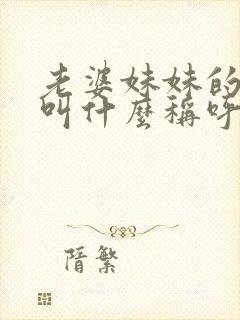 老婆妹妹的
叫什麼稱呼
隋繁